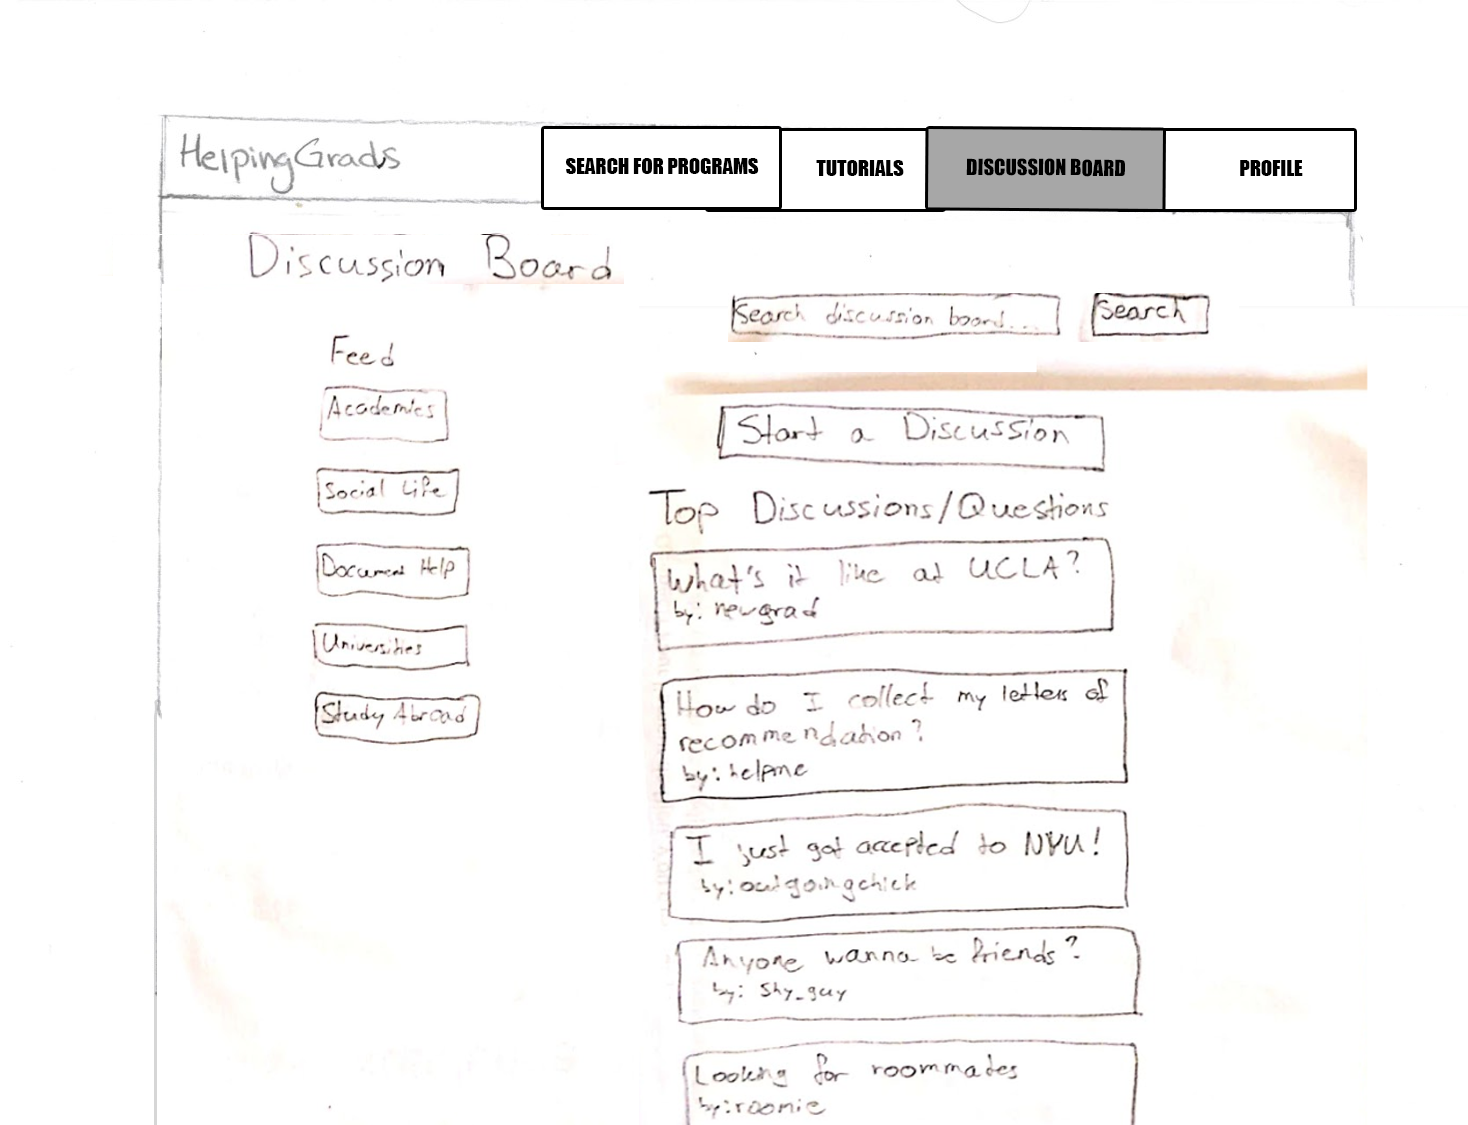 HelpingGrads
SEARCH FOR PROGRAMS
TUTORIALS
DISCUSSION BOARD
PROFILE
Discussion Board
Search discussion board...
Search
Feed
Academics
Social Life
Document Help
Universities
Study Abroad
Start a Discussion
Top Discussions/Questions
What's it like at UCLA?
by: newgrad
How do I collect my letters of
recommendation?
by: helpme
I just got accepted to NYU!
by: outgoingchick
Anyone wanna be friends?
by: shy_guy
Looking for roommates
by: roomie